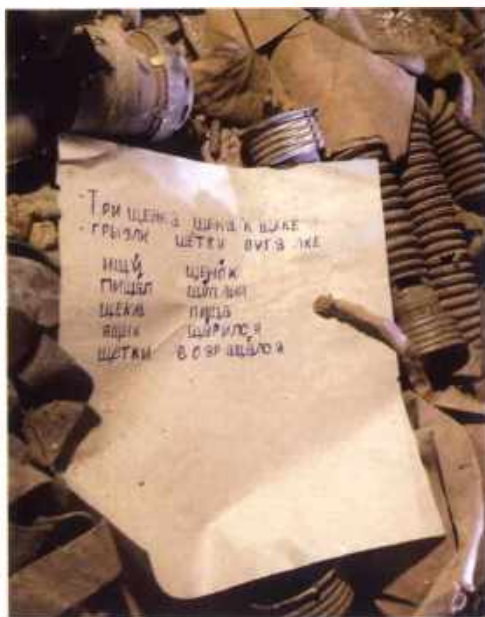 - ТРИ ЩЕНКА ЩЕКА К ЩЕКЕ
- ГРЫЗЛИ ЩЕТКИ В УГОЛКЕ
ИЩУ ЩЕНОК
ПИЩАЛ ЩУПАЛ
ЩЕКА ПИЩА
ЯЩИК ЩУРИЛСЯ
ЩЕТКИ ВОЗРАЩАЛСЯ